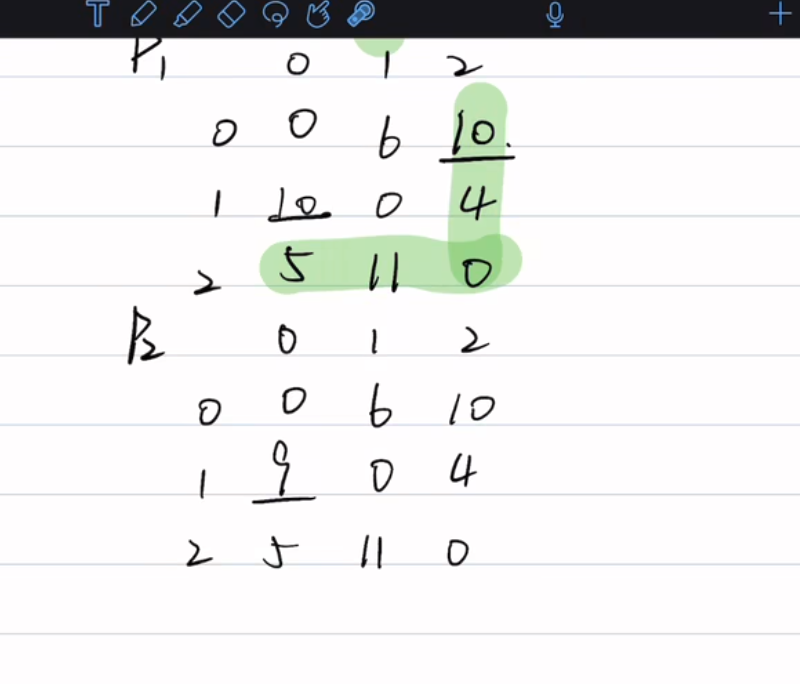 T
P1 0 1 2
0 0 6 10.
1 10 0 4
2 5 11 0
P2 0 1 2
0 0 6 10
1 9 0 4
2 5 11 0